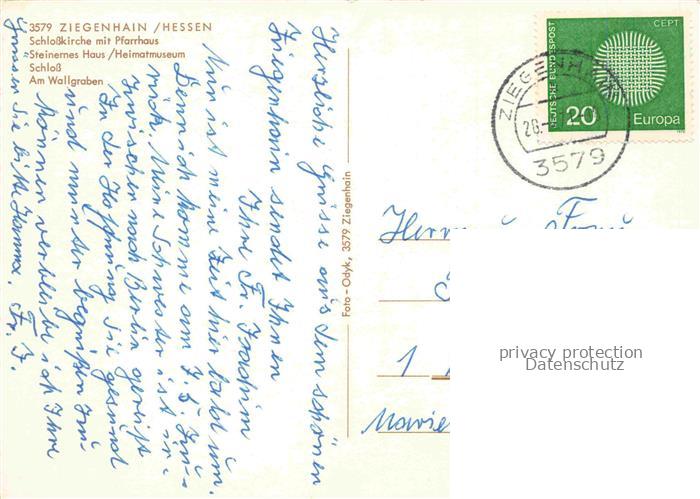 3579 ZIEGENHAIN / HESSEN
Schloßkirche mit Pfarrhaus
Steinernes Haus / Heimatmuseum
Schloß
Am Wallgraben
Herzliche Grüsse aus dem schönen
Ziegenhain sendet Ihnen
Ihre Fr. Joachim
Nun ist meine Zeit hier bald um.
Dennich komme am 7.5. zu-
rück. Meine Schwester ist in-
zwischen nach Berlin gereist
In der Hoffnung Sie gesund
und munter begrüßen zu
können verbleibe ich Ihre
Grüssen Sie bitte Hanna. Fr. J.
Foto-Odyk, 3579 Ziegenhain
DEUTSCHE BUNDESPOST
CEPT
20
Europa
1970
ZIEGENHAIN
3579
Herrn u. Frau
1
Marie
privacy protection
Datenschutz